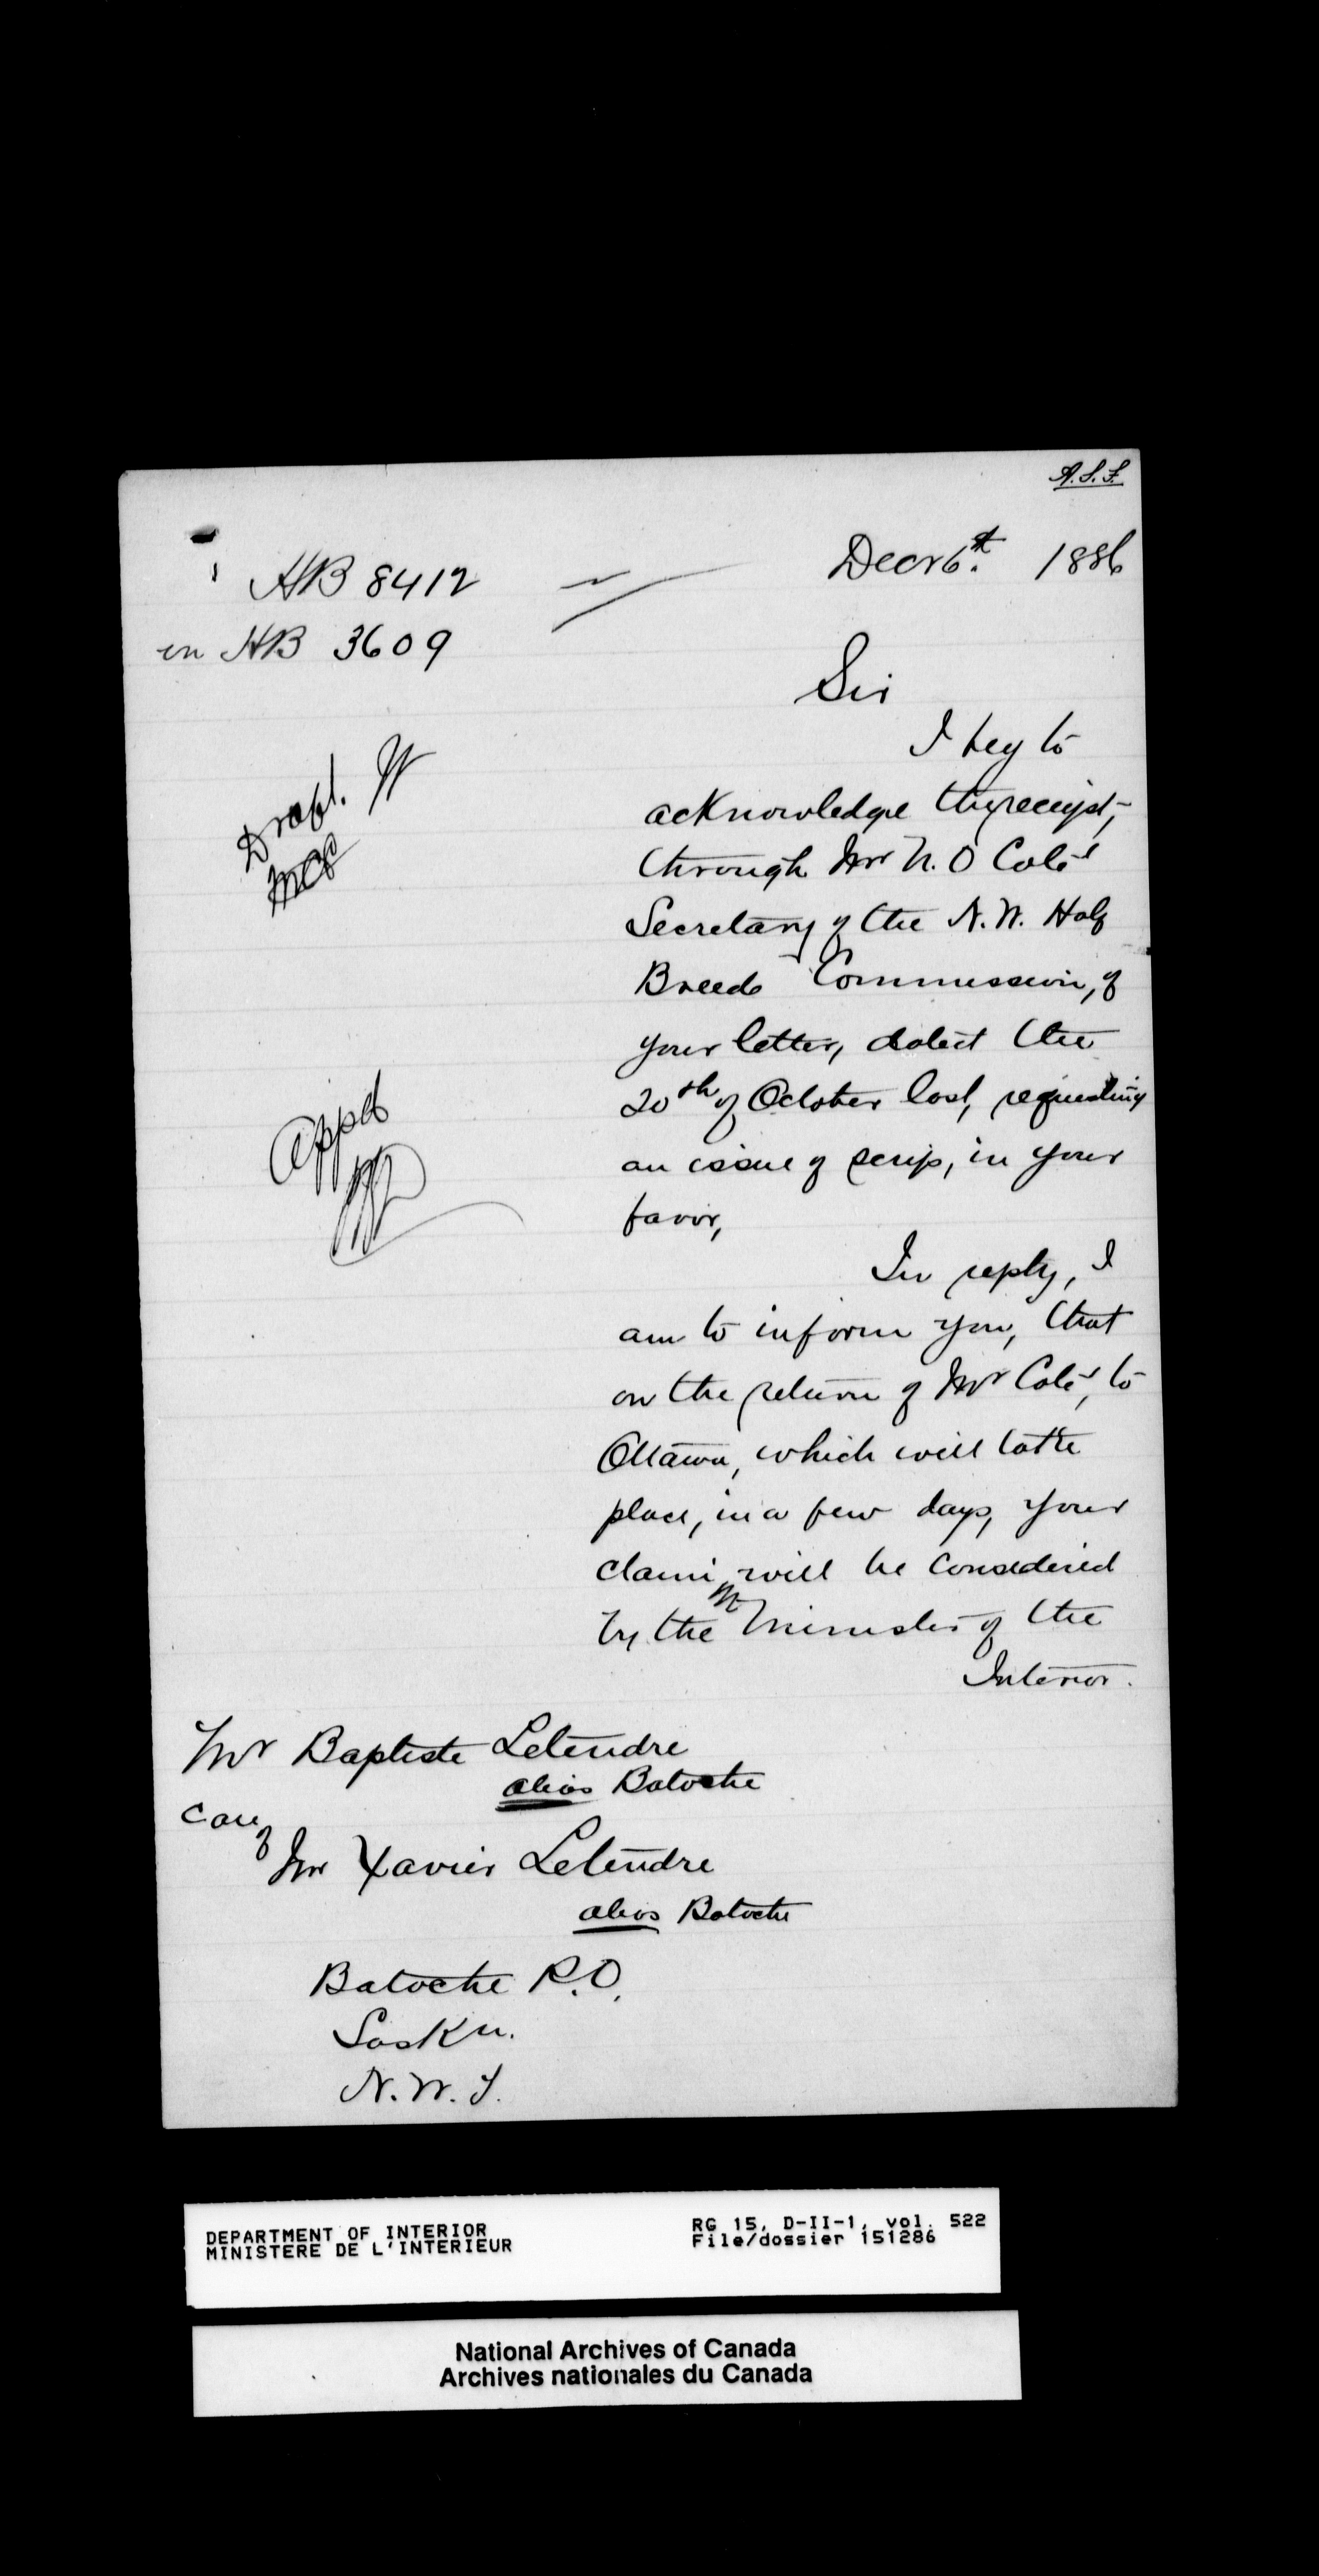 A.S.F.
HB 8412
Decr 6th. 1886
in HB 3609
Sir
I beg to
Draft.
acknowledge the receipt,
through Mr N. O Coté
Secretary of the N. W. Half
Breeds Commission, of
your letter, dated the
20th of October last, requesting
Appd
an issue of scrip, in your
favor,
In reply, I
am to inform you, that
on the return of Mr Coté, to
Ottawa, which will take
place, in a few days, your
claim, will be considered
by the Minister of the
Interior.
Mr Baptiste Letendre
alias Batoche
Care of
Mr Xavier Letendre
alias Batoche
Batoche P.O.
Saskn.
N.W.T.
DEPARTMENT OF INTERIOR
MINISTERE DE L'INTERIEUR
RG 15, D-II-1, vol. 522
File/dossier 151286
National Archives of Canada
Archives nationales du Canada